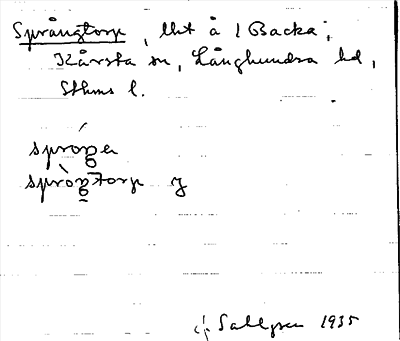 Språngtorp, lht å 1 Backa;
Kårsta sn, Långhundra hd,
Sthms l.
spróŋa
spròŋtorp y
J. Sahlgren 1935